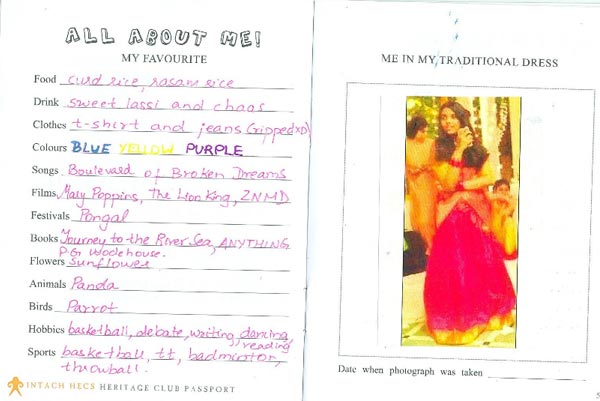 ALL ABOUT ME!
MY FAVOURITE
Food curd rice, rasam rice
Drink sweet lassi and chaas
Clothes t-shirt and jeans (rippedXD)
Colours BLUE YELLOW PURPLE
Songs Boulevard of Broken Dreams
Films Mary Poppins, The Lion King, ZNMD
Festivals Pongal
Books Journey to the River Sea, ANYTHING
P.G Wodehouse.
Flowers Sunflower
Animals Panda
Birds Parrot
Hobbies basketball, debate, writing, dancing,
reading
Sports basketball, tt, badminton,
throwball.
INTACH HECS HERITAGE CLUB PASSPORT
ME IN MY TRADITIONAL DRESS
Date when photograph was taken
5